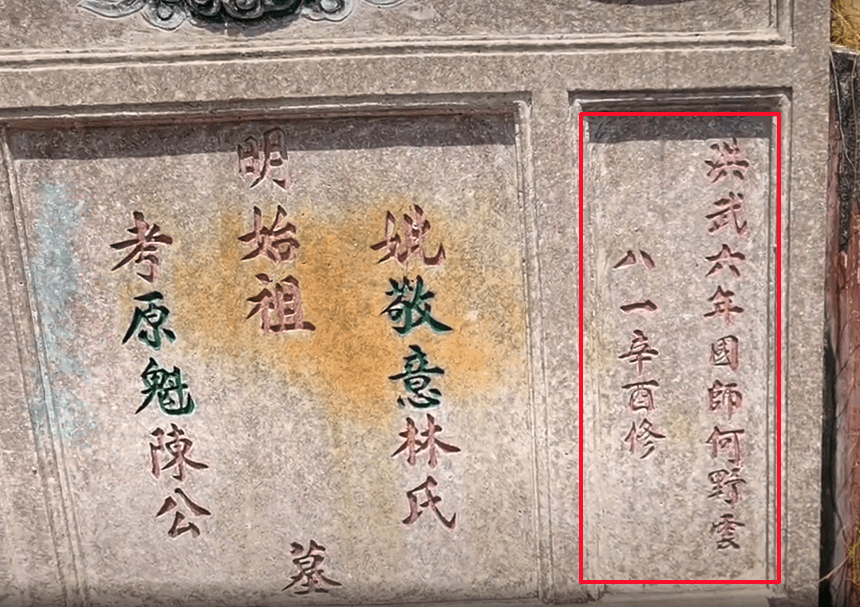 洪武六年國師何野雲
八一辛酉修
妣敬意林氏
明始祖
墓
考原魁陳公